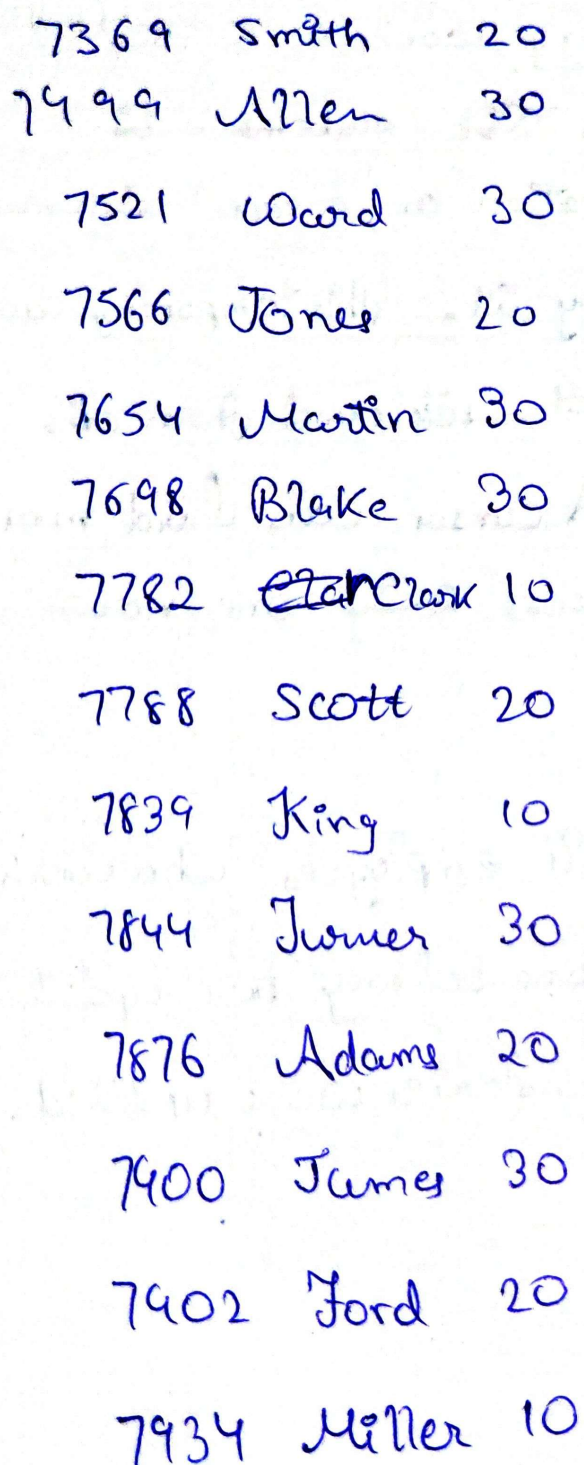 7369 Smith 20
7499 Allen 30
7521 Ward 30
7566 Jones 20
7654 Martin 30
7698 Blake 30
7782 Clark 10
7788 Scott 20
7839 King 10
7844 Turner 30
7876 Adams 20
7900 James 30
7902 Ford 20
7934 Miller 10